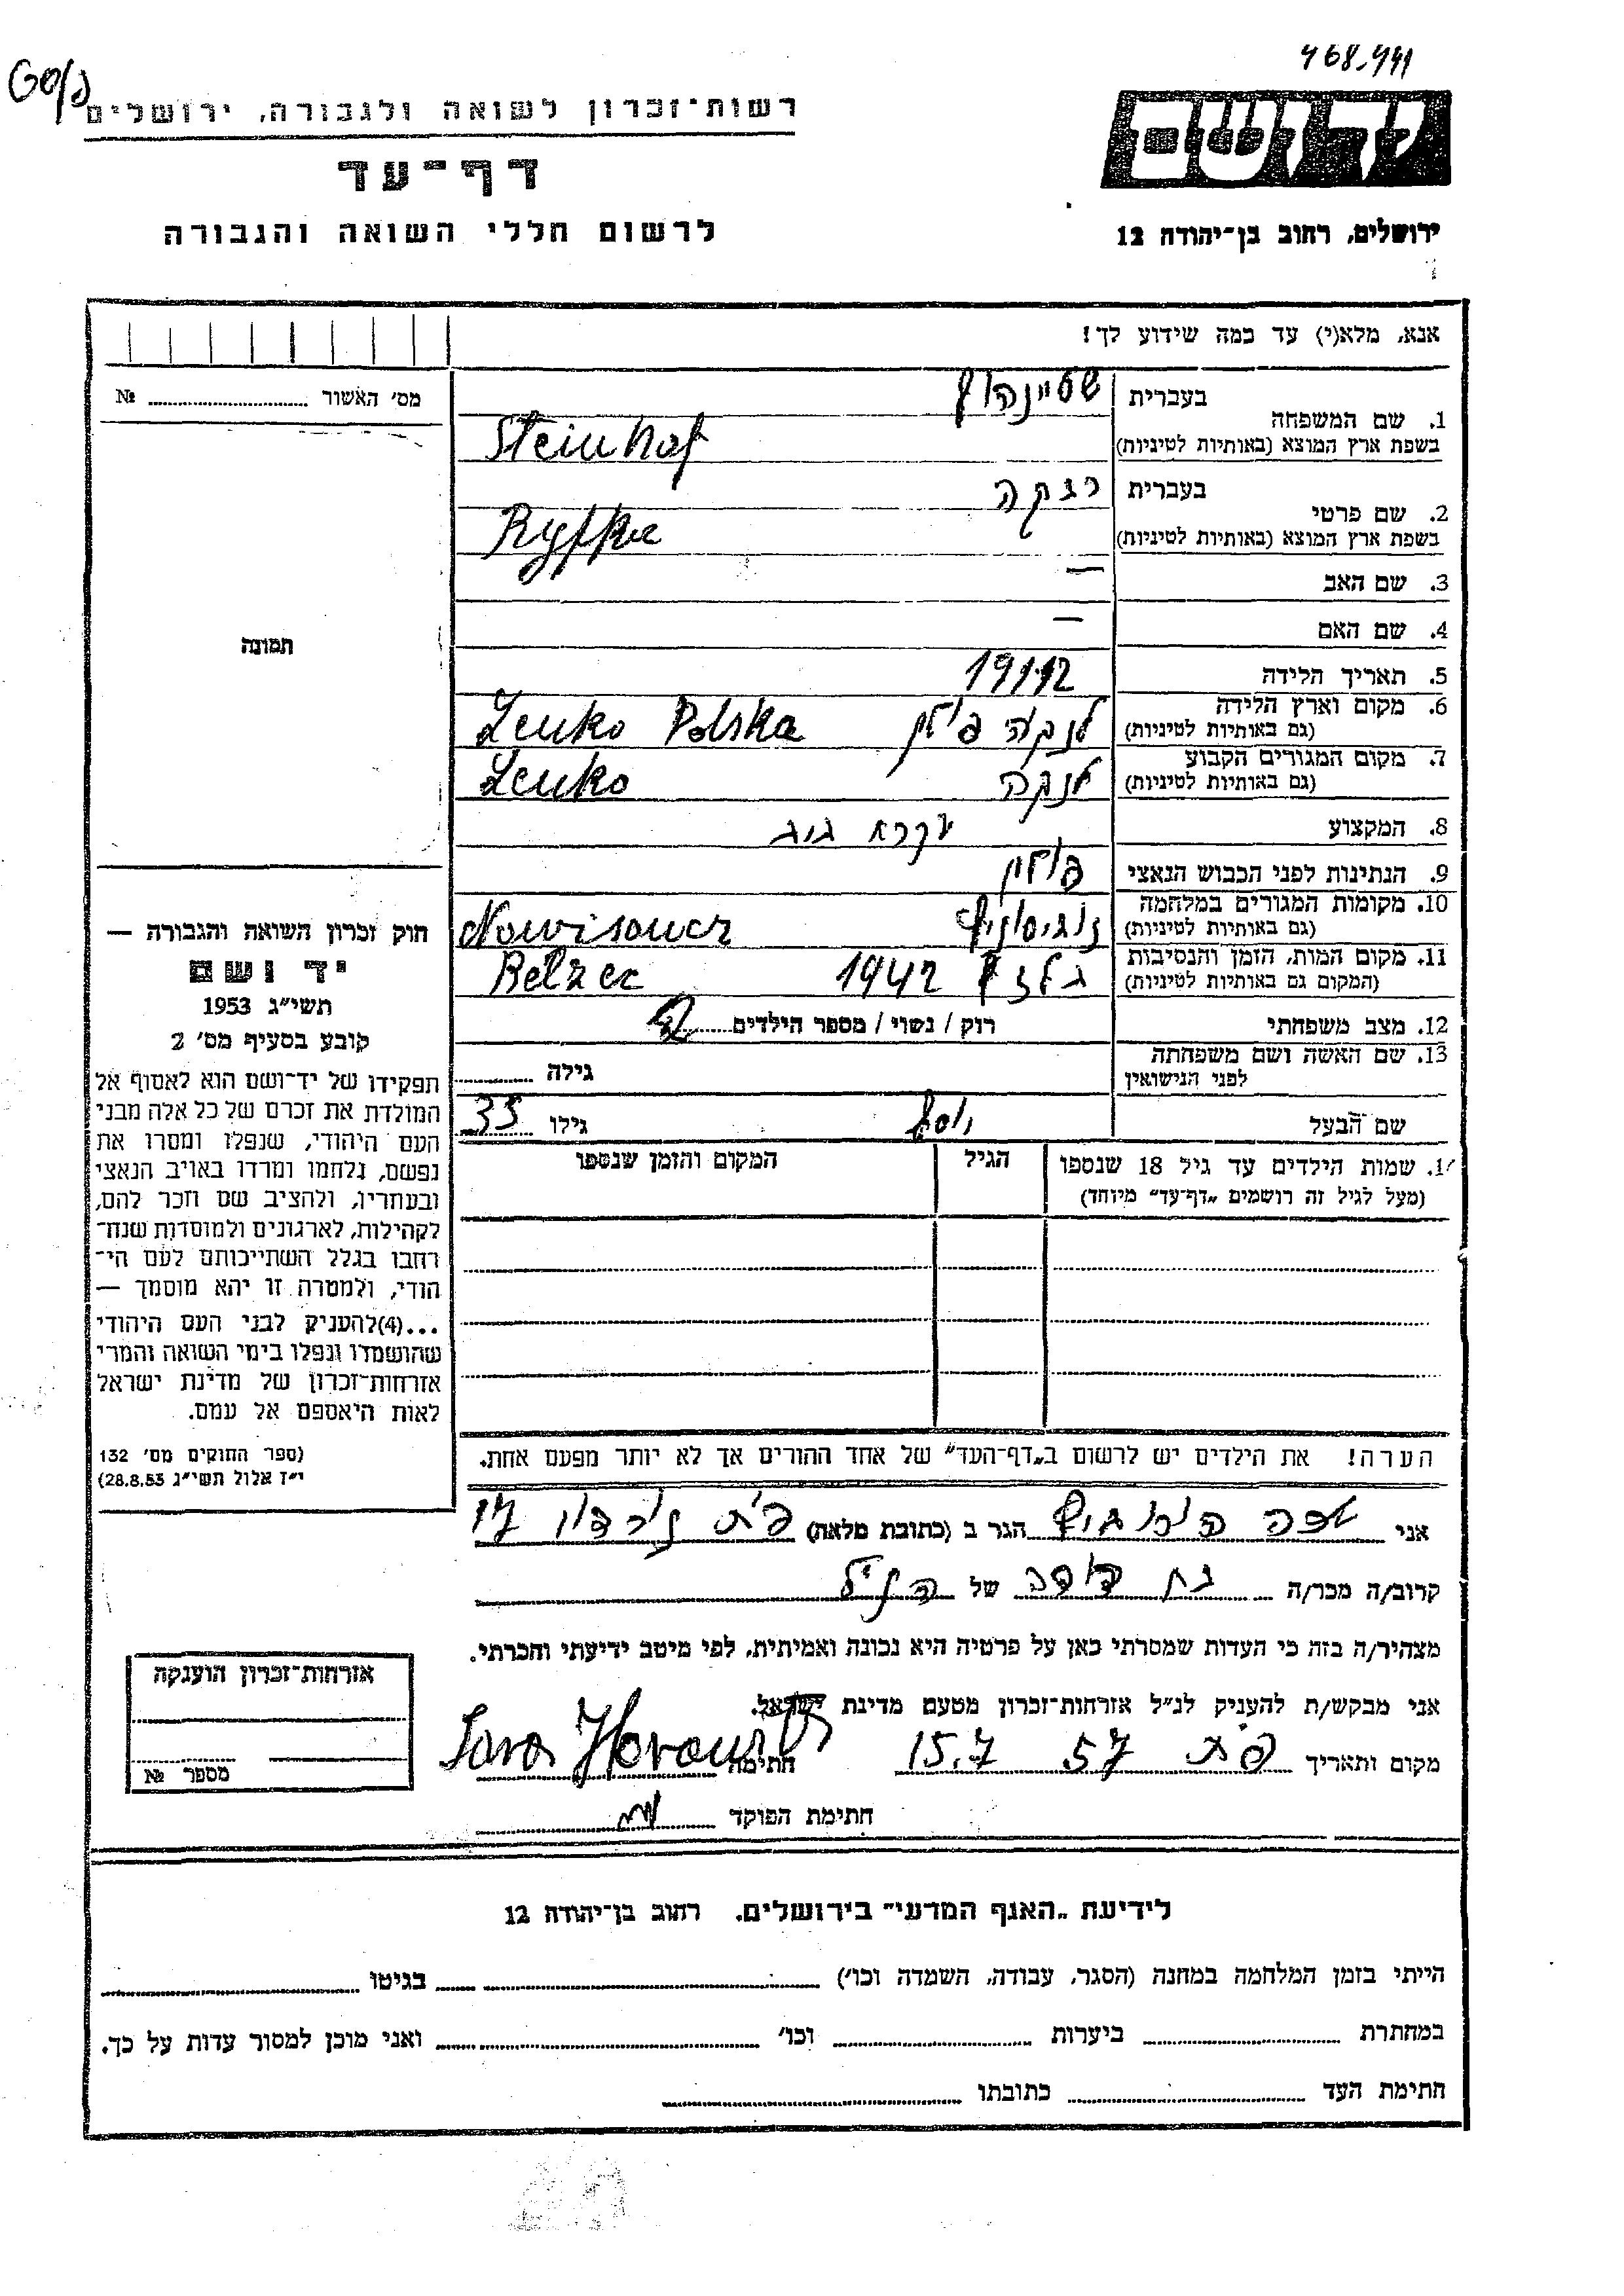 468.441
רשות־זכרון לשואה ולגבורה, ירושלים
דף־עד
לרשום חללי השואה והגבורה
יד ושם
ירושלים, רחוב בן־יהודה 12
אנא, מלא(י) עד כמה שידוע לך!
מס׳ האשור № 
1. שם המשפחה
בעברית שטיינהוף
בשפת ארץ המוצא (באותיות לטיניות) Steinhof
2. שם פרטי
בעברית רבקה
בשפת ארץ המוצא (באותיות לטיניות) Ryfka
3. שם האב —
4. שם האם —
5. תאריך הלידה 1912
6. מקום וארץ הלידה
(גם באותיות לטיניות) לנקה פולין Lenko Polska
7. מקום המגורים הקבוע
(גם באותיות לטיניות) לנקה Lenko
8. המקצוע עקרת בית
9. הנתינות לפני הכבוש הנאצי פולין
10. מקומות המגורים במלחמה
(גם באותיות לטיניות) Nowisoncz
11. מקום המות, הזמן והנסיבות
(המקום גם באותיות לטיניות) בלזץ 1942 Belzec
12. מצב משפחתי רוק / נשוי / מספר הילדים 2
13. שם האשה ושם משפחתה
לפני הנישואין גילה
שם הבעל יוסף גילו 35
14. שמות הילדים עד גיל 18 שנספו
(מעל לגיל זה רושמים „דף־עד״ מיוחד)
הגיל
המקום והזמן שנספו
הערה! את הילדים יש לרשום ב„דף־העד״ של אחד ההורים אך לא יותר מפעם אחת.
תמונה
חוק זכרון השואה והגבורה —
יד ושם
תשי״ג 1953
קובע בסעיף מס׳ 2
תפקידו של יד־ושם הוא לאסוף אל
המולדת את זכרם של כל אלה מבני
העם היהודי, שנפלו ומסרו את
נפשם, נלחמו ומרדו באויב הנאצי
ובעוזריו, ולהציב שם וזכר להם,
לקהילות, לארגונים ולמוסדות שנח־
רבו בגלל השתייכותם לעם הי־
הודי, ולמטרה זו יהא מוסמך —
...(4)להעניק לבני העם היהודי
שהושמדו ונפלו בימי השואה והמרי
אזרחות־זכרון של מדינת ישראל
לאות היאספם אל עמם.
(ספר החוקים מס׳ 132
י״ז אלול תשי״ג 28.8.53)
אני שרה הורוביץ הגר ב (כתובת מלאה) פ״ת
קרוב/ה מכר/ה בת דודה של הנ״ל
מצהיר/ה בזה כי העדות שמסרתי כאן על פרטיה היא נכונה ואמיתית, לפי מיטב ידיעתי והכרתי.
אני מבקש/ת להעניק לנ״ל אזרחות־זכרון מטעם מדינת ישראל.
מקום ותאריך פ״ת 57 15.7 חתימה Sara
חתימת הפוקד
אזרחות־זכרון הוענקה
מספר №
לידיעת „האגף המדעי״ בירושלים, רחוב בן־יהודה 12
הייתי בזמן המלחמה במחנה (הסגר, עבודה, השמדה וכו׳) בגיטו
במחתרת ביערות וכו׳ ואני מוכן למסור עדות על כך.
חתימת העד כתובתו